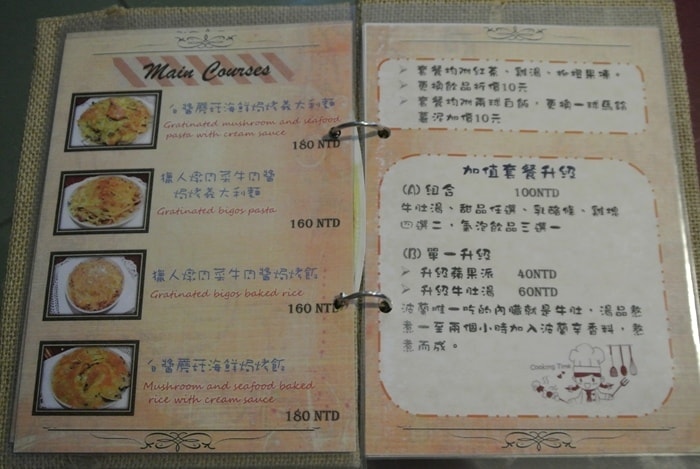 Main Courses
白醬蘑菇海鮮焗烤義大利麵
Gratinated mushroom and seafood
pasta with cream sauce
180 NTD
獵人燉肉菜牛肉醬
焗烤義大利麵
Gratinated bigos pasta
160 NTD
獵人燉肉菜牛肉醬焗烤飯
Gratinated bigos baked rice
160 NTD
白醬蘑菇海鮮焗烤飯
Mushroom and seafood baked
rice with cream sauce
180 NTD
套餐均附紅茶、雞湯、柳橙果凍。
更換飲品折價10元
套餐均附兩球白飯,更換一球馬鈴
薯泥加價10元
加值套餐升級
(A) 組合 100NTD
牛肚湯、甜品任選、乳酪條、雞塊
四選二,氣泡飲品三選一
(B) 單一升級
升級蘋果派 40NTD
升級牛肚湯 60NTD
波蘭唯一吃的內臟就是牛肚,湯品熬
煮一至兩個小時加入波蘭辛香料,熬
煮而成。
Cooking Time